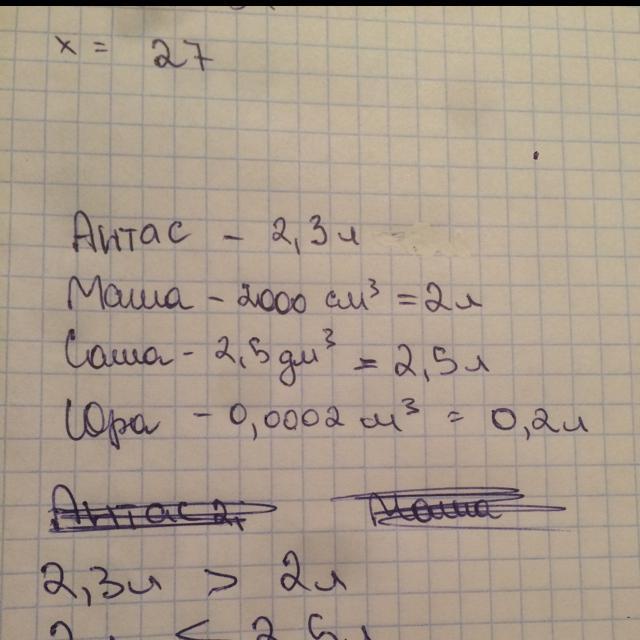 x = 27
Антас - 2,3л
Маша - 2000 см³ = 2л
Саша - 2,5 дм³ = 2,5л
Юра - 0,0002 м³ = 0,2л
Антас 2, Маша
2,3л > 2л